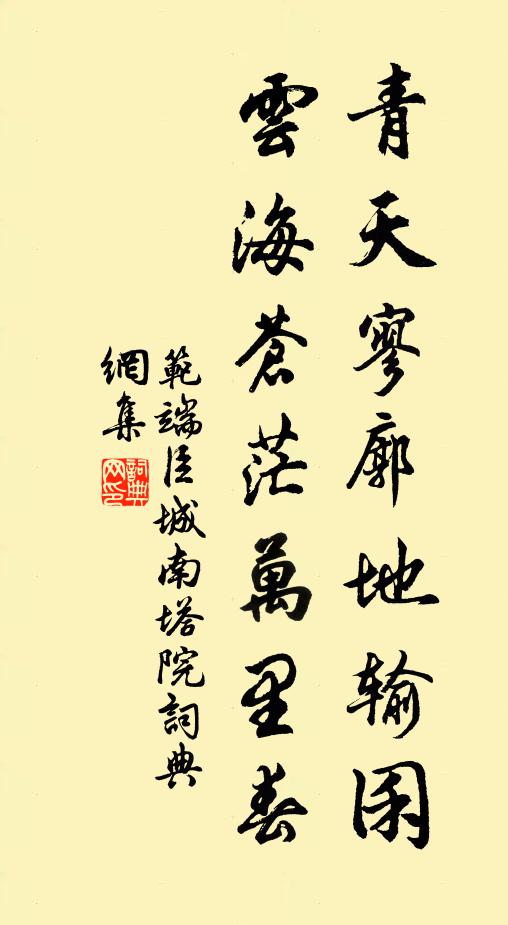 青天寥廓地输囷
雲海蒼茫萬里春
範端臣城南塔院詞典
網集
詞典網印